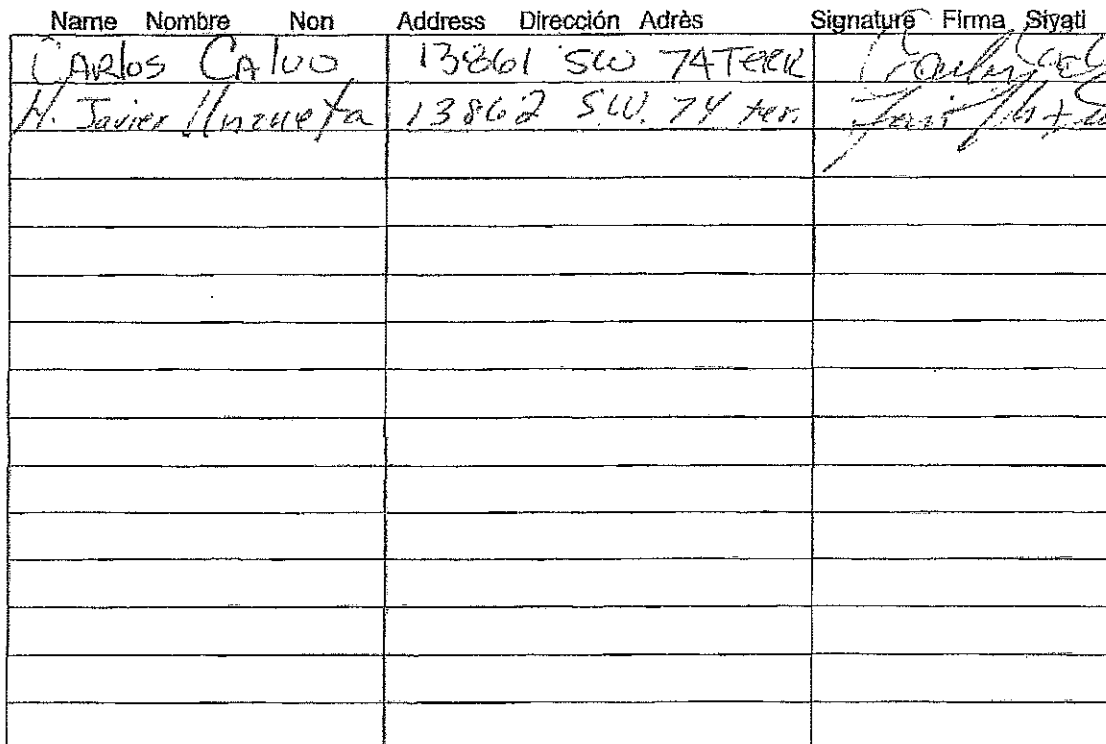 Name Nombre Non Address Dirección Adrès Signature Firma Siyati
CARLOS CALVO 13861 SW 74 TERR
H. Javier Unzueta 13862 S.W. 74 terr.